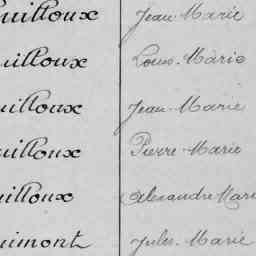 uilloux Jean Marie
uilloux Louis Marie
uilloux Jean Marie
uilloux Pierre Marie
uilloux Alexandre Mari
uimont Jules Marie